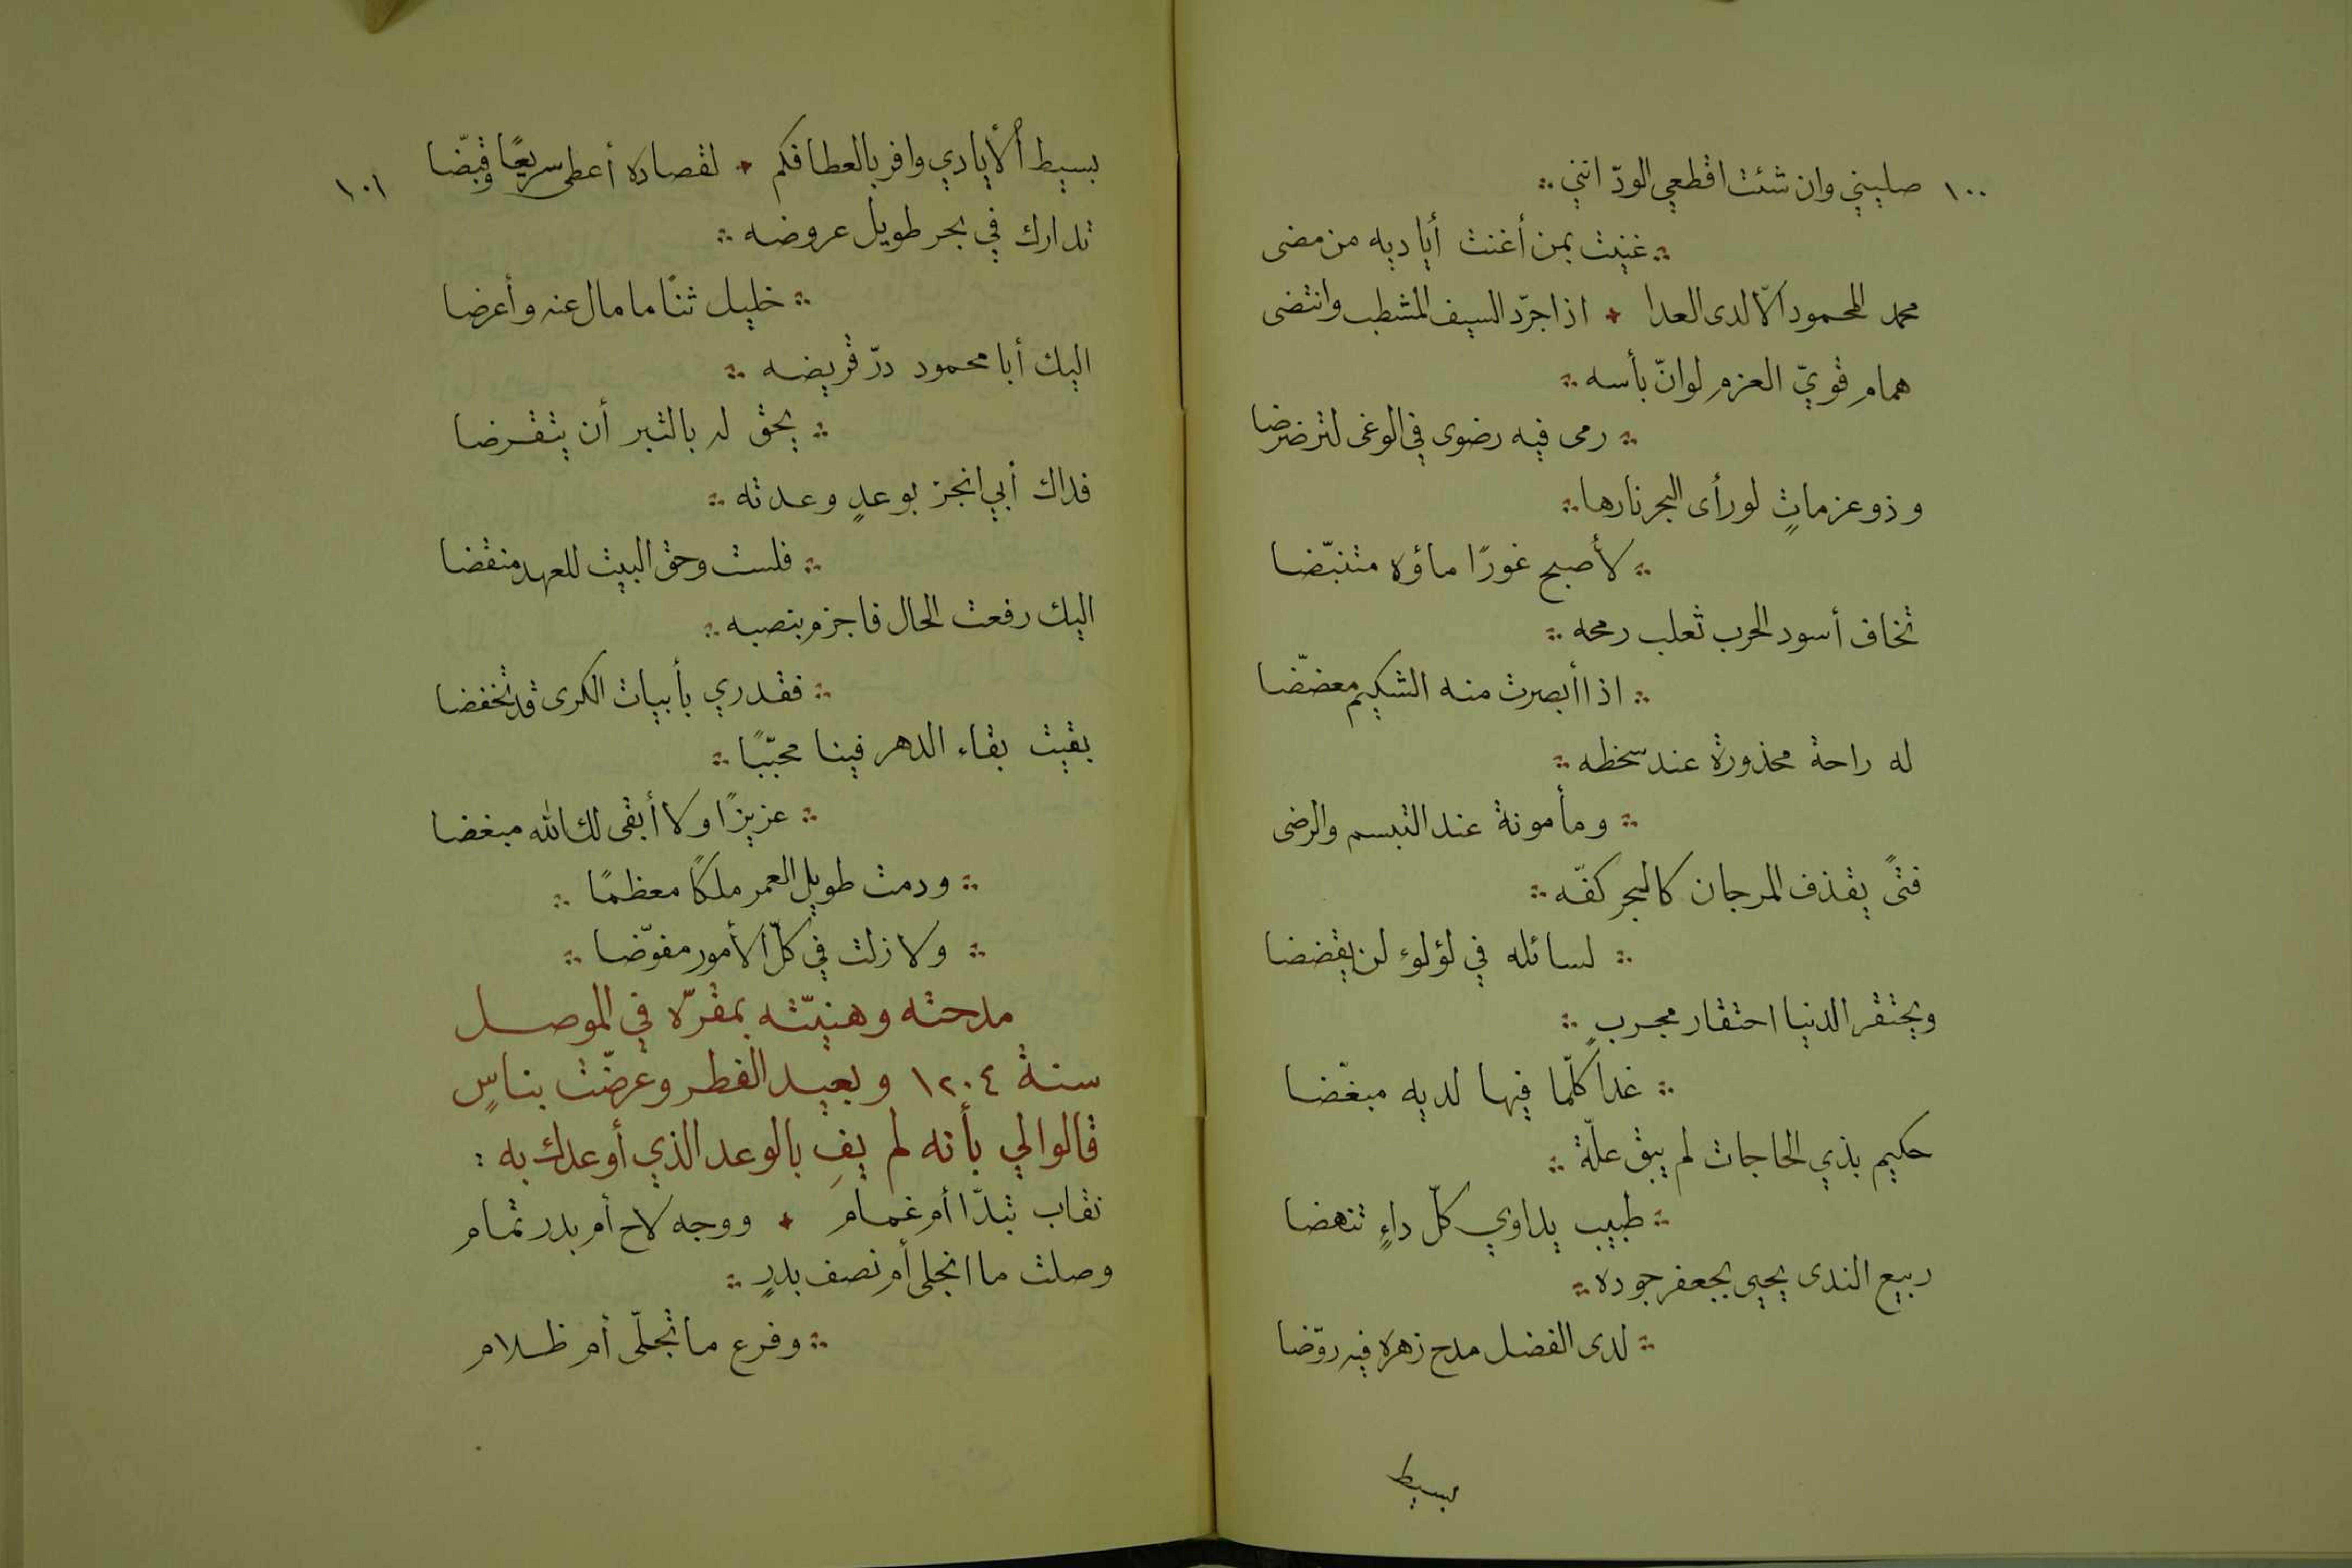 ١٠٠ صليني وان شئت اقطعي الودّ انني ∴
∴ غنيت بمن أغنت أياديه من مضى
محمد المحمود الّا لدى العدا + اذا جرّد السيف المشطب وانتضى
همام قويّ العزم لو انّ بأسه ∴
∴ رمى فيه رضوى في الوغى لترضرضا
وذو عزماتٍ لو رأى البحر نارها ∴
∴ لأصبح غورًا ماؤه متنبّضا
تخاف أسود الحرب ثعلب رمحه ∴
∴ اذا أبصرت منه الشكيم معضّضا
له راحة محذورة عند سخطه ∴
∴ ومأمونة عند التبسم والرضى
فتىً يقذف المرجان كالبحر كفّه ∴
∴ لسائله في لؤلوء لن يقضضا
ويحتقر الدنيا احتقار مجربٍ ∴
∴ غدا كلّما فيها لديه مبغّضا
حكيم بذي الحاجات لم يبق علّة ∴
∴ طبيب يداوي كلّ داءٍ تنهضا
ربيع الندى يحيى بجعفر جوده ∴
∴ لدى الفضل مدح زهره فيه روّضا
بسيط
١٠١
بسيط الأيادي وافر بالعطا فكم + لقصاده أعطى سريعًا وقبّضا
تدارك في بحر طويل عروضه ∴
∴ خليل ثنًا ما مال عنه وأعرضا
اليك أبا محمود درّ قريضه ∴
∴ يحق له بالتبر أن يتقرضا
فداك أبي انجز بوعدٍ وعدته ∴
∴ فلست وحق البيت للعهد منقضا
اليك رفعت الحال فاجزم بنصبه ∴
∴ فقدري بأبيات الكرى قد تخفضا
بقيت بقاء الدهر فينا محبّبًا ∴
∴ عزيزًا ولا أبقى لك الله مبغضا
∴ ودمت طويل العمر ملكًا معظمًا ∴
∴ ولا زلت في كلّ الأمور مفوّضا ∴
مدحته وهنيّته بمقرّه في الموصل
سنة ١٢٠٤ وبعيد الفطر وعرضّت بناسٍ
قالوا لي بأنه لم يفِ بالوعد الذي أوعدك به :
نقاب تبدّا أم غمام + ووجه لاح أم بدر تمام
وصلت ما انجلى أم نصف بدرٍ ∴
∴ وفرع ما تجلّى أم ظلام